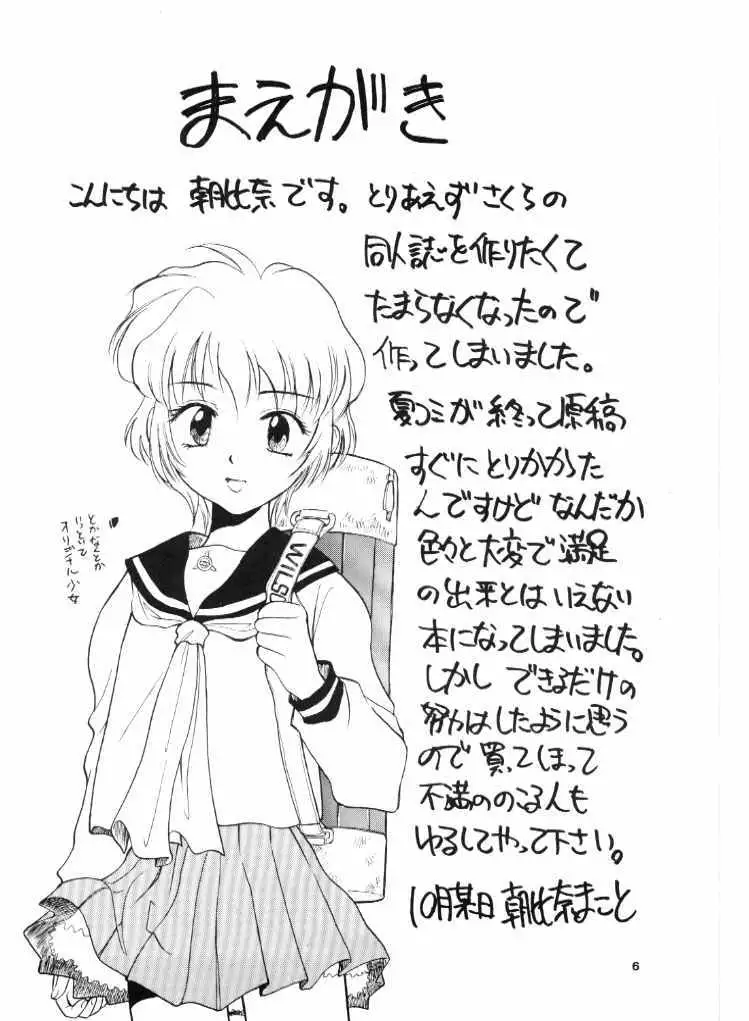 まえがき
こんにちは 朝比奈です。とりあえずさくらの
同人誌を作りたくて
たまらなくなったので
作ってしまいました。
夏コミが終って原稿
すぐにとりかかった
んですけど なんだか
色々と大変で満足
の出来とはいえない
本になってしまいました。
しかし できるだけの
努力はしたように思う
ので 買ってしまって
不満ののこる人も
ゆるしてやって下さい。
10月某日 朝比奈まこと
とかなんとか
いっといて
オリジナル少女♥
WILS
6